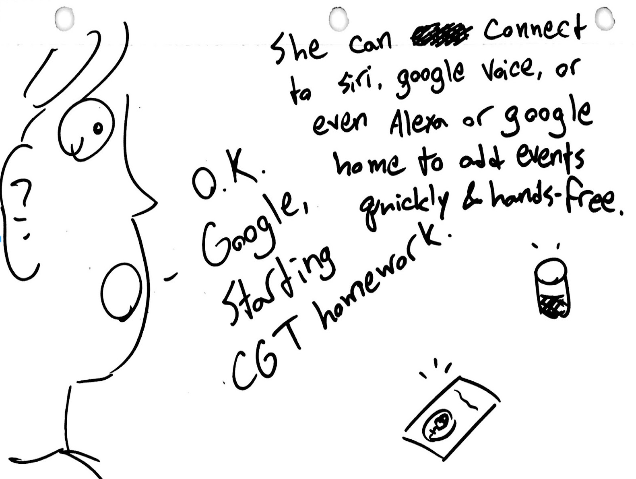 She can connect
to siri, google voice, or
even Alexa or google
home to add events
quickly & hands-free.
O.K.
Google,
Starting
CGT homework.